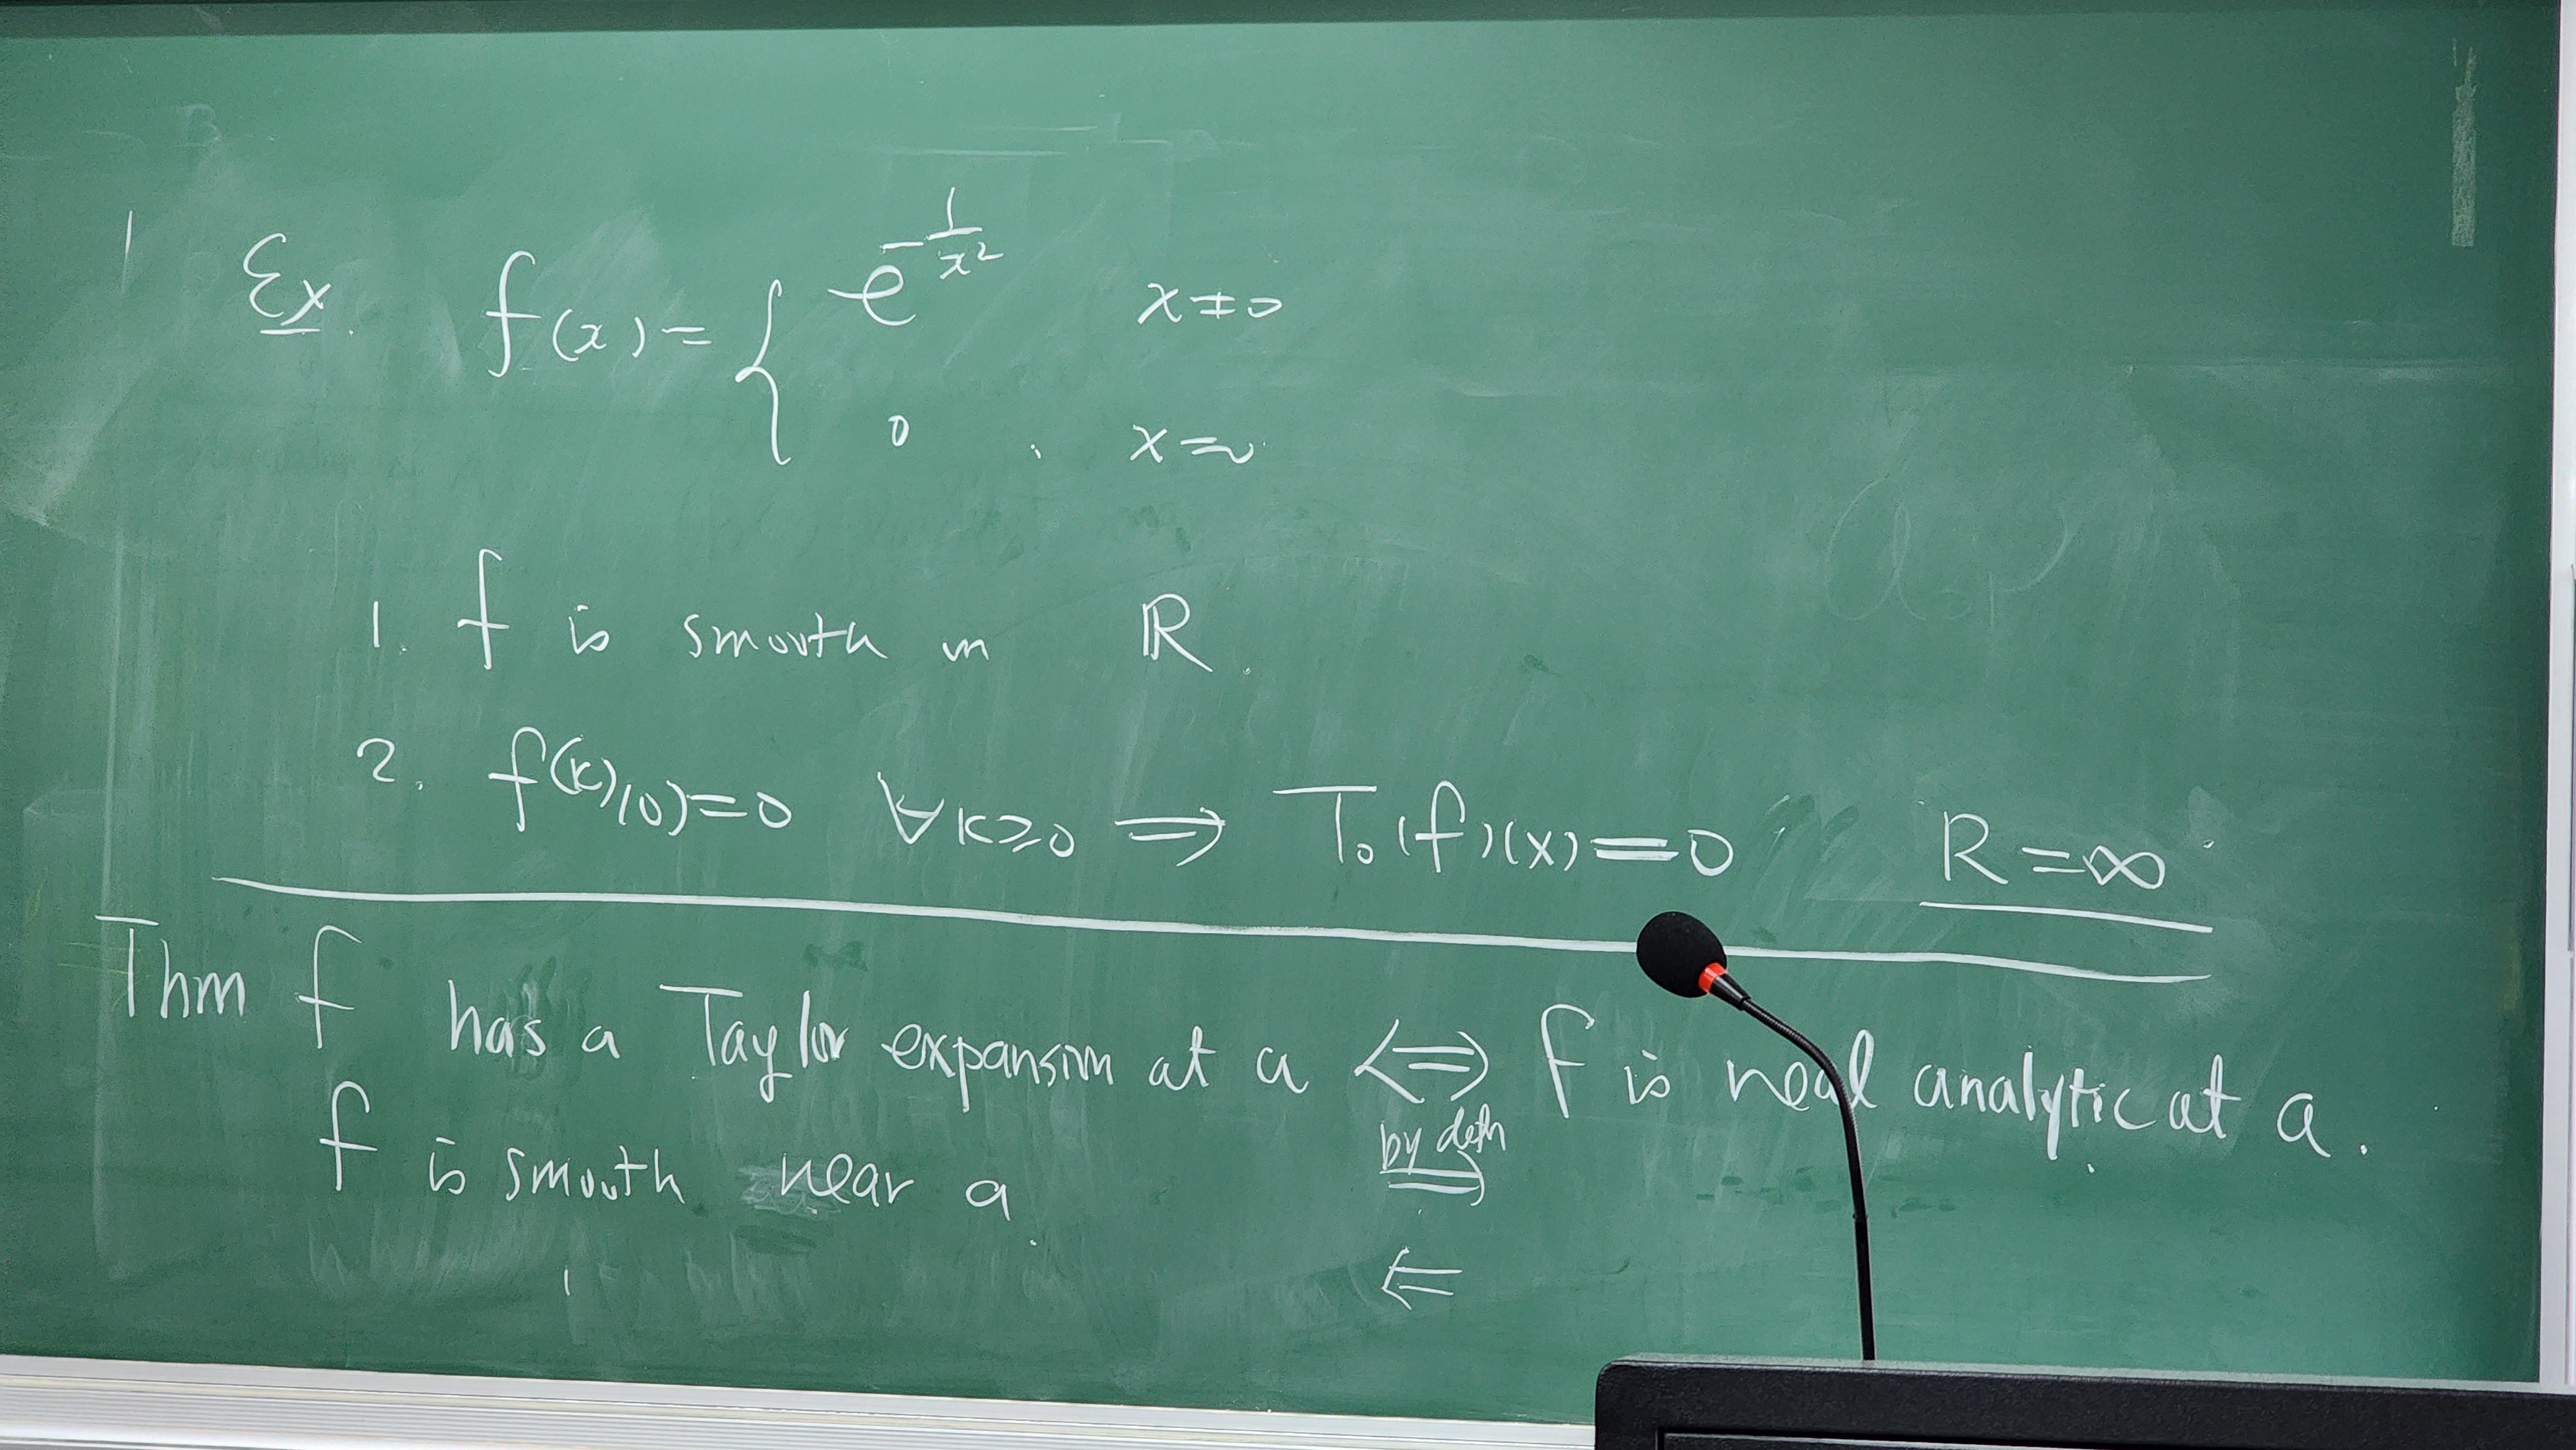 Ex. f(x) = { e^{-1/x²} x≠0
0 , x=0
1. f is smooth in ℝ.
2. f^{(k)}(0)=0 ∀k≥0 ⟹ T₀(f)(x)=0 R=∞
Thm f has a Taylor expansion at a ⟺ f is real analytic at a.
by defn
f is smooth near a. ⟹
⟸